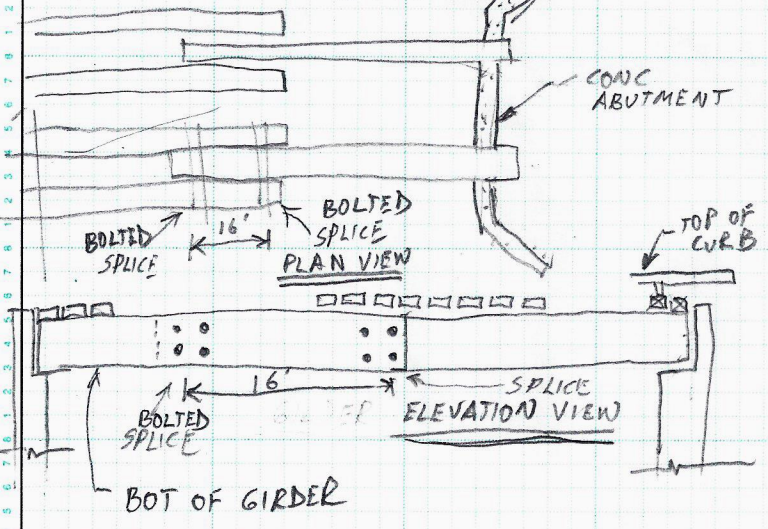 CONC
ABUTMENT
BOLTED
SPLICE
16'
BOLTED
SPLICE
PLAN VIEW
TOP OF
CURB
16'
SPLICE
BOLTED
SPLICE
ELEVATION VIEW
BOT OF GIRDER